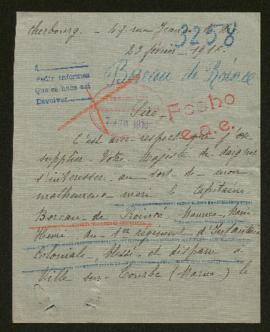 Cherbourg - 47 rue
3258
23 février 1915.
A
Pedir informes
que se hace así
Devolver
Boreau de Roincé
Sire,
Fecho
C'est avec respect que je
supplier Votre Majesté de daigner
s'intéresser au sort de mon
malheureux mari le capitaine
Boreau - de Roincé Maurice, Marie
du 1er régiment d'Infanterie
Coloniale, blessé et disparu à
Ville sur Tourbe (Marne) le